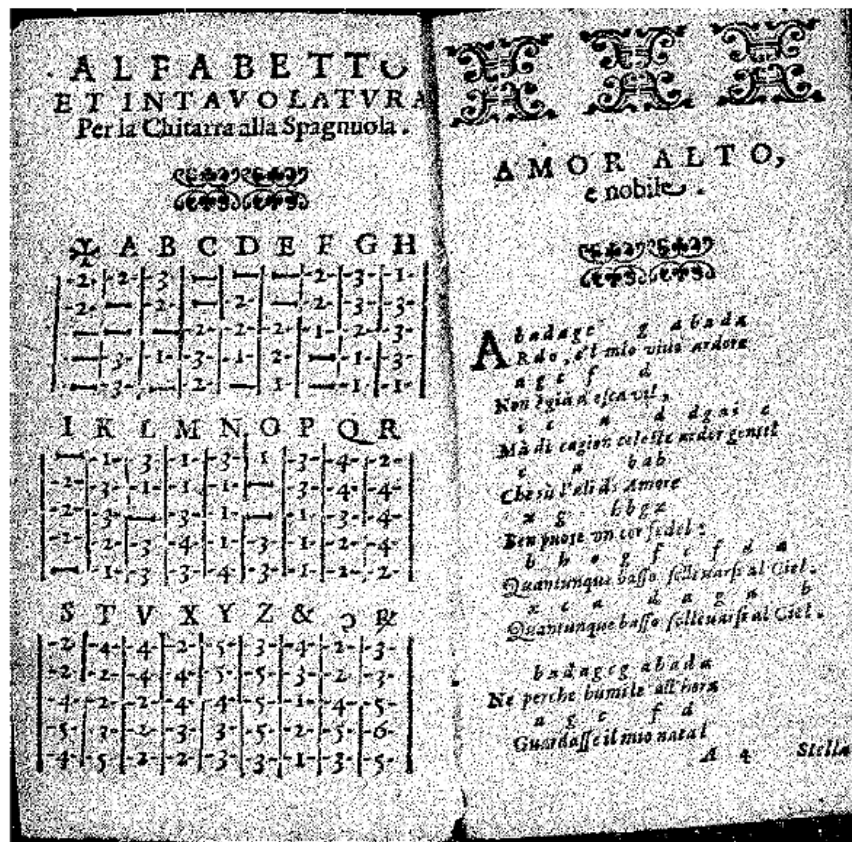 ALFABETTO
ET INTAVOLATVRA
Per la Chitarra alla Spagnuola.
✠ A B C D E F G H
-2- -2- -3- — — — -2- -3- -1-
-2- — -2- — -2- — -2- -3- -3-
— — — -2- -2- -2- -1- -2- -3-
— -3- -1- -3- -1- 2 — -1- -3-
— -3- — -2- — -1- — -1- -1-
I K L M N O P Q R
— -1- -3- -1- -3- 1 -3- -4- -2-
-2- -3- -1- -1- -1- — -3- -4- -4-
-2- -3- — -3- -1- — -1- -3- -4-
-2- -3- -4- -1- -3- -1- -2- -4-
— -1- -3- -3- -4- -3- -1- -2- -2-
S T V X Y Z & ɔ ꝶ
-2- -4- -4- -2- -5- -3- -4- -2- -3-
-2- -2- -4- -4- -5- -5- -3- -2- -3-
-4- -2- -2- -4- -4- -5- -1- -4- -5-
-5- 3- -2- -3- 3- -5- -2- -5- -6-
-4- -5- -2- -2- -3- -3- -1- -3- -5-
AMOR ALTO,
e nobile.
b a d a g e g a b a d a
ARdo, e'l mio viuo ardore
a g e f d
Non è già d'esca vil,
Mà di cagion celeste ardor gentil
e a b a b
Che sù l'ali di Amore
x g b b g z
Ben puote vn cor fedel:
b b o g f e f d a
Quantunque basso solleuarsi al Ciel.
x e a d a g a b
Quantunque basso solleuarsi al Ciel.
b a d a g e g a b a d a
Ne perche humile all'hora
a g e f d
Guardasse il mio natal
A 4 Stella